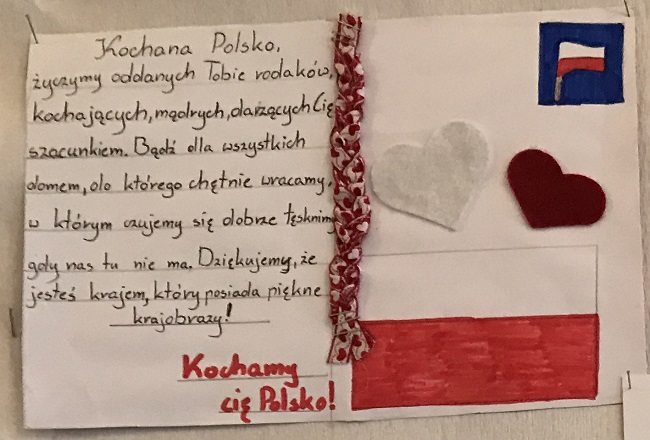 Kochana Polsko,
życzymy oddanych Tobie rodaków,
kochających, mądrych, darzących Cię
szacunkiem. Bądź dla wszystkich
domem, do którego chętnie wracamy,
w którym czujemy się dobrze tęsknimy
gdy nas tu nie ma. Dziękujemy, że
jesteś krajem, który posiada piękne
krajobrazy!
Kochamy
cię Polsko!